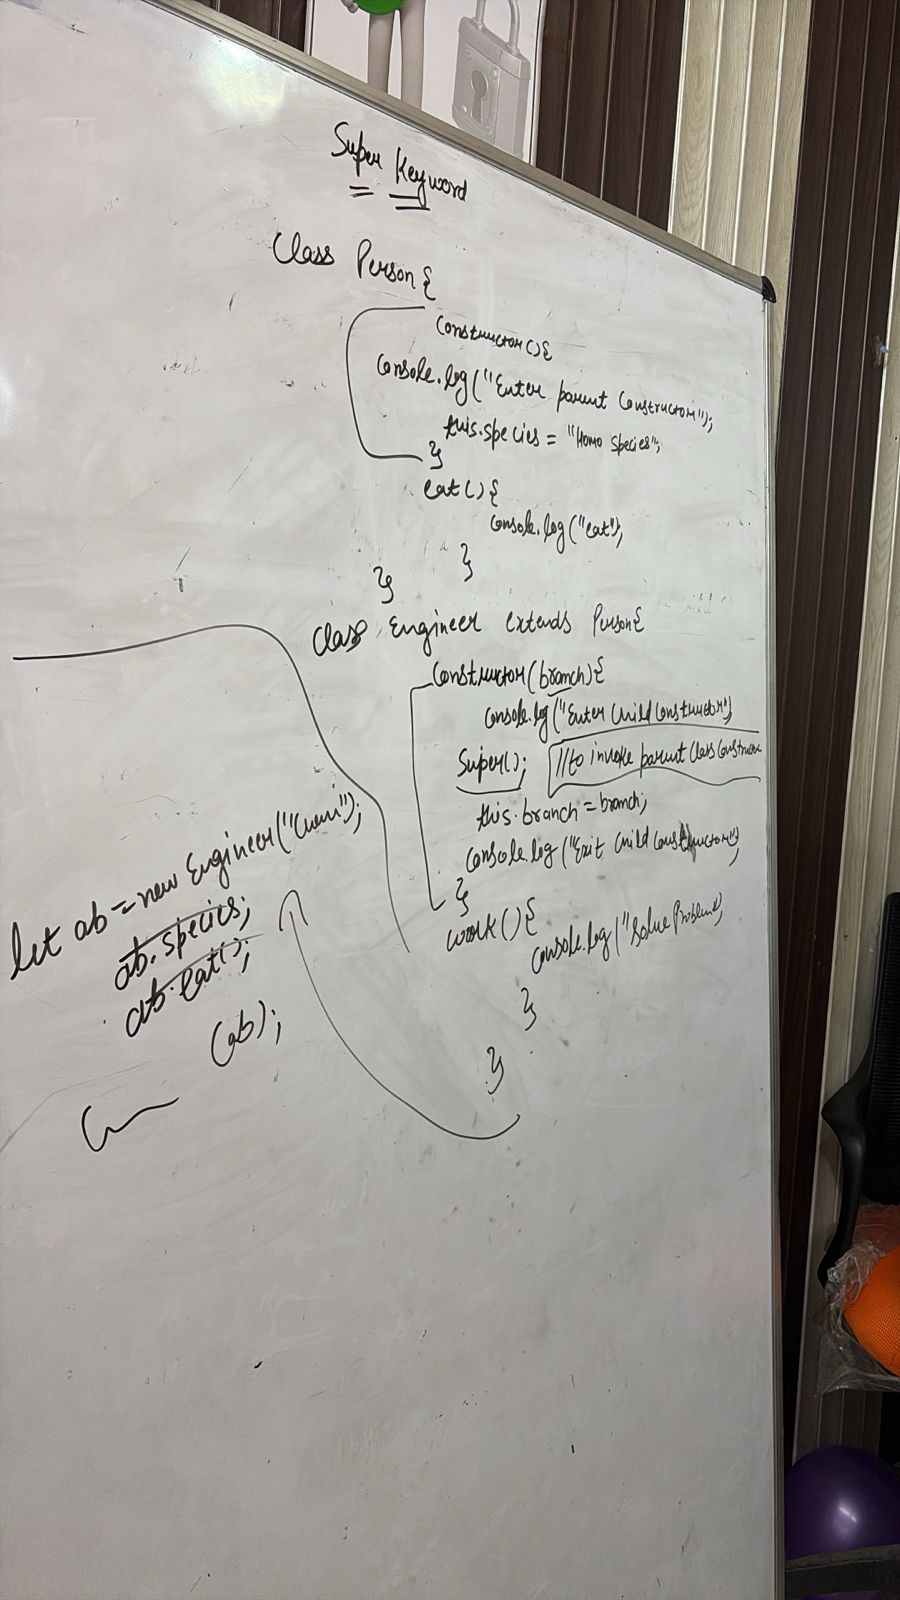 Super Keyword
Class Person {
Constructor() {
Console.log("Enter parent Constructor");
this.species = "Homo Species";
}
eat() {
Console.log("eat");
}
}
Class Engineer extends Person {
Constructor(branch) {
Console.log("Enter Child Constructor")
Super(); //to invoke parent Class Constructor
this.branch = branch;
Console.log("Exit Child Constructor");
}
work() {
Console.log("Solve Problem");
}
}
let ab = new Engineer(
ab.species;
ab.eat();
(ab);